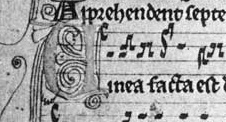 Apprehendent septe
Vinea facta est d